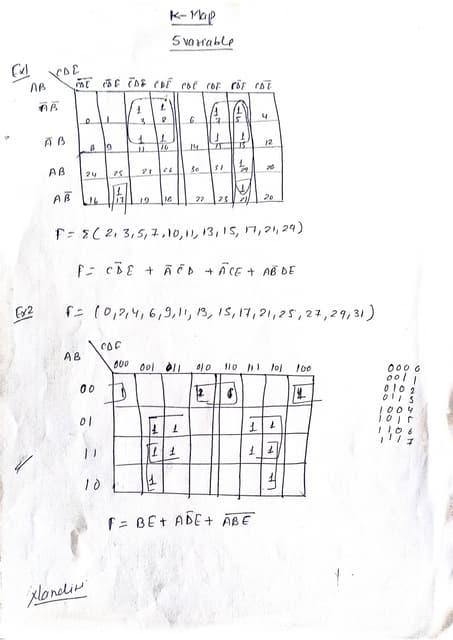 K-Map
5 variable
Ex1
CDE
AB
C̅D̅E̅ C̅D̅E C̅DE CDE CDE
A̅B̅ 0 1 1 3 1 2 6 1 7 1 5 4
A̅B 8 9 1 11 1 10 14 1 15 1 13 12
AB 24 25 30 31 1 29 28
AB̅ 16 1 17 19 18 22 23 1 21 20
F = Σ(2, 3, 5, 7, 10, 11, 13, 15, 17, 21, 29)
F = CD̅E + A̅C̅D + A̅CE + AB̅D̅E
Ex2 F = (0, 2, 4, 6, 9, 11, 13, 15, 17, 21, 25, 27, 29, 31)
CDE
AB
000 001 011 010 110 111 101 100
00 1 1 1
01 1 1 1 1
11 1 1 1 1
10 1 1
000 0
001 1
010 2
011 3
100 4
101 5
110 6
111 7
F = BE + AD̅E + A̅B̅E̅